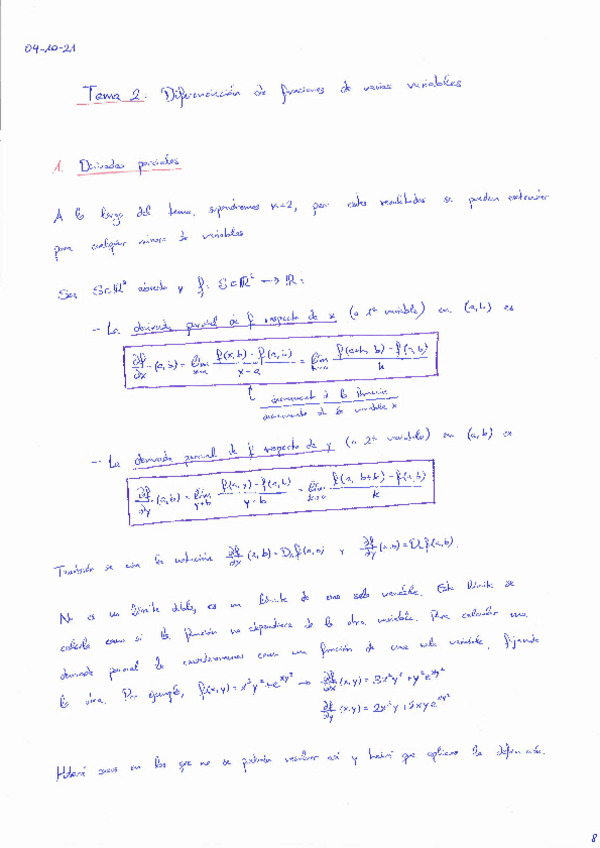 04-10-21
Tema 2. Diferenciación de funciones de varias variables
1. Derivadas parciales
A lo largo del tema, supondremos n=2, pero estos resultados se pueden extender
para cualquier número de variables
Sea S⊂ℝ² abierto y f: S⊂ℝ² → ℝ:
- La derivada parcial de f respecto de x (o 1ª variable) en (a,b) es
∂f/∂x (a,b) = lim x→a (f(x,b) - f(a,b))/(x-a) = lim h→0 (f(a+h, b) - f(a,b))/h
incremento de la función
incremento de la variable x
- La derivada parcial de f respecto de y (o 2ª variable) en (a,b) es
∂f/∂y (a,b) = lim y→b (f(a,y) - f(a,b))/(y-b) = lim k→0 (f(a, b+k) - f(a,b))/k
También se usa la notación ∂f/∂x (a,b) = D₁f(a,b) y ∂f/∂y (a,b) = D₂f(a,b).
No es un límite doble, es un límite de una sola variable. Este límite se
calcula como si la función no dependiera de la otra variable. Para calcular una
derivada parcial la consideraremos como una función de una sola variable, fijando
la otra. Por ejemplo, f(x,y) = x³y² + e^(xy²) → ∂f/∂x (x,y) = 3x²y² + y²e^(xy²)
∂f/∂y (x,y) = 2x³y + 2xye^(xy²)
Habrá casos en los que no se podrá resolver así y habrá que aplicar la definición.
8